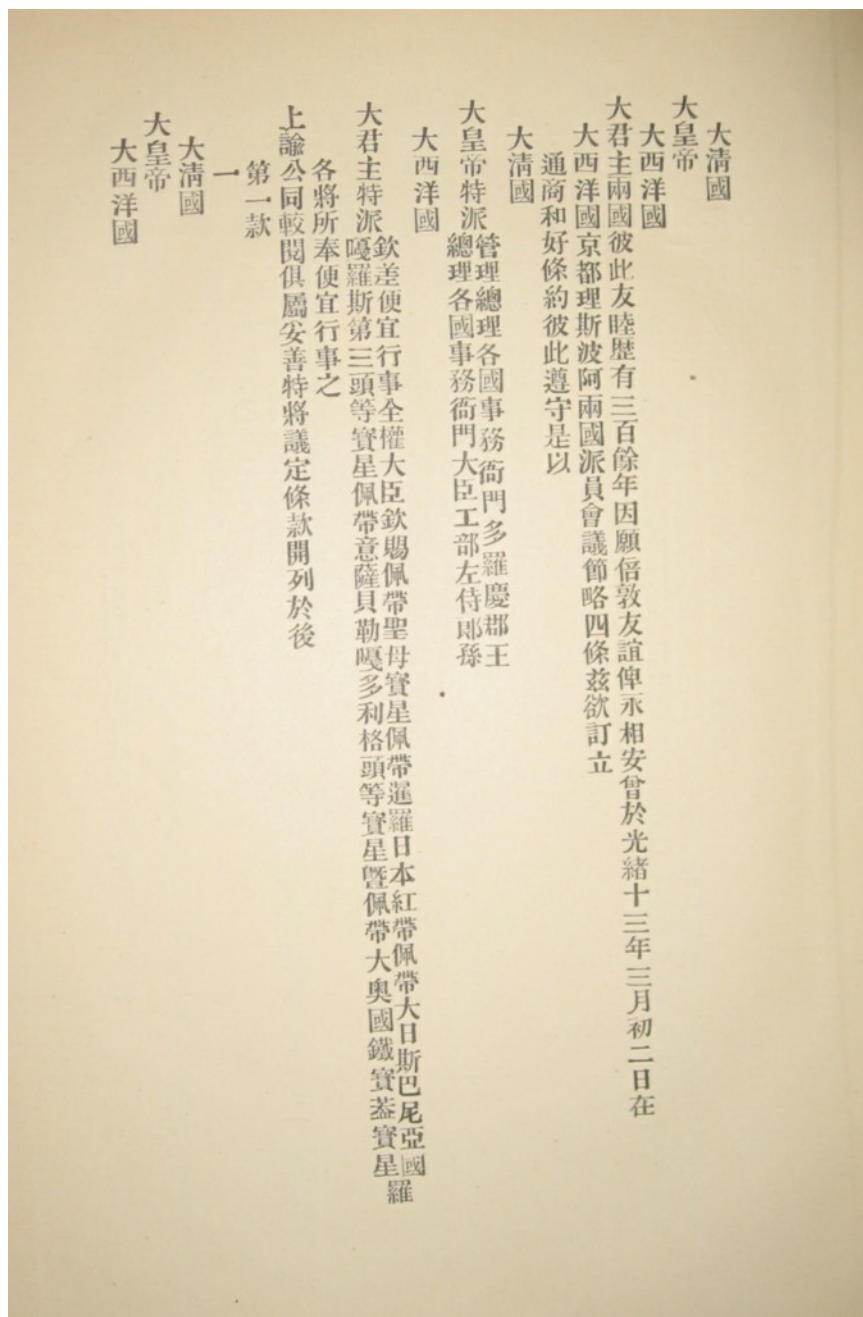 大清國
大皇帝
大西洋國
大君主兩國彼此友睦歷有三百餘年因願倍敦友誼俾永相安曾於光緒十三年三月初二日在
大西洋國京都理斯波阿兩國派員會議節略四條兹欲訂立
通商和好條約彼此遵守是以
大清國
大皇帝特派管理總理各國事務衙門多羅慶郡王
總理各國事務衙門大臣工部左侍郎孫
大西洋國
大君主特派欽差便宜行事全權大臣欽賜佩帶聖母寶星佩帶暹羅日本紅帶佩帶大日斯巴尼亞國
嘎羅斯第三頭等寶星佩帶意薩貝勒嘎多利格頭等寶星暨佩帶大奧國鐵寶蓋寶星羅
各將所奉便宜行事之
上諭公同較閱俱屬妥善特將議定條款開列於後
第一款
一
大清國
大皇帝
大西洋國